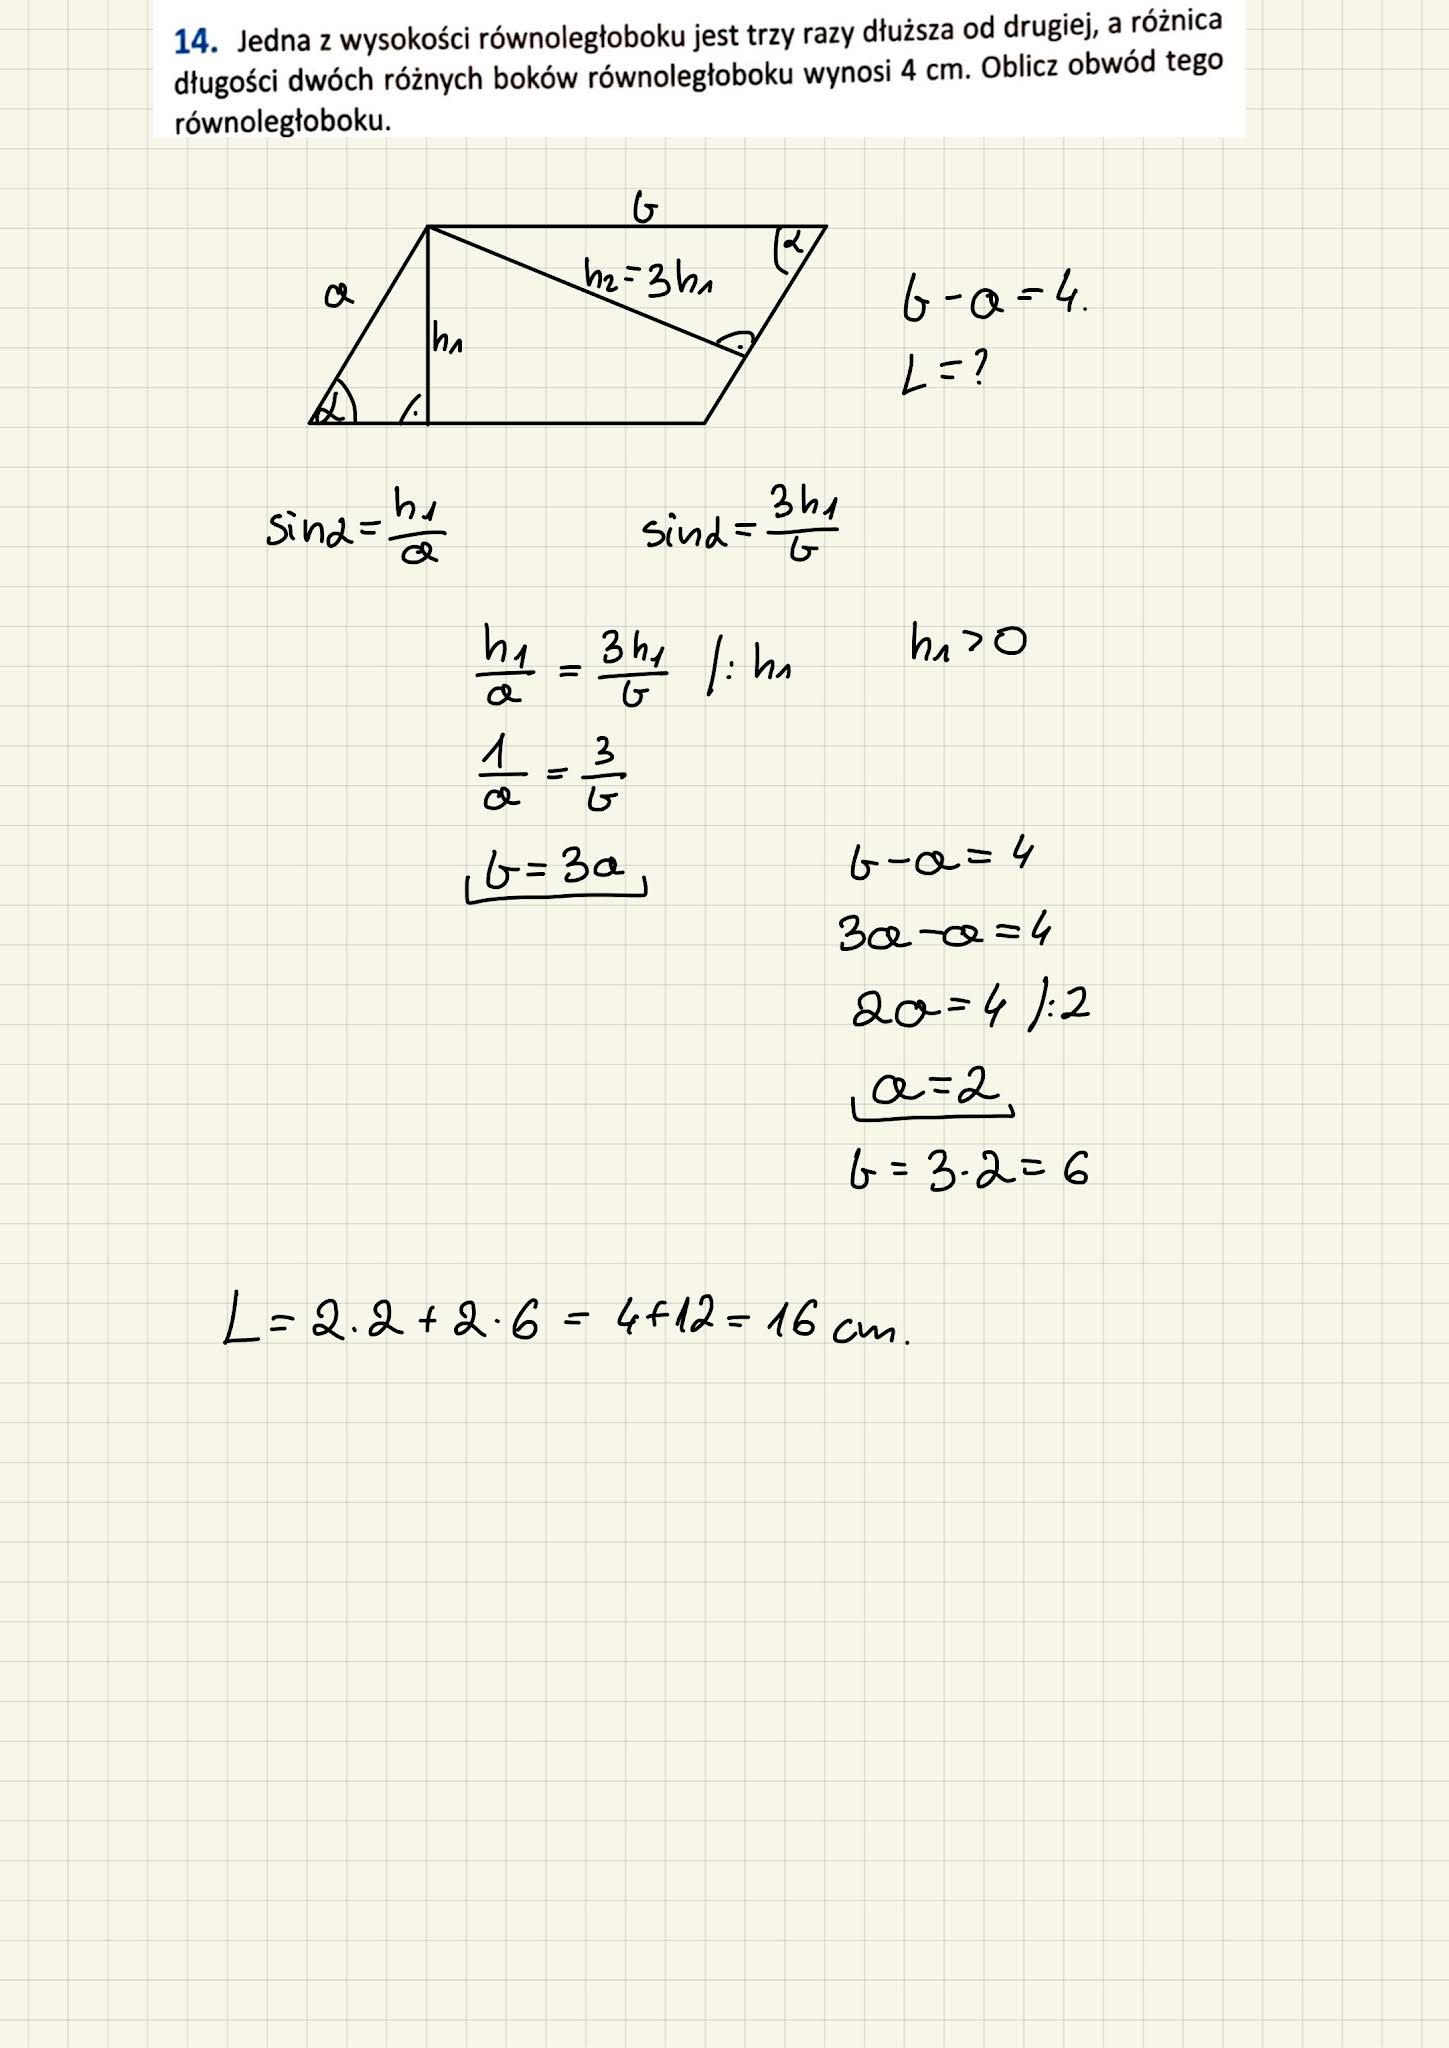 14. Jedna z wysokości równoległoboku jest trzy razy dłuższa od drugiej, a różnica
długości dwóch różnych boków równoległoboku wynosi 4 cm. Oblicz obwód tego
równoległoboku.
b
α
a
h₂=3h₁
b-a=4.
h₁
L=?
α
sinα=h₁/a
sinα=3h₁/b
h₁/a = 3h₁/b /:h₁
h₁>0
1/a = 3/b
b=3a
b-a=4
3a-a=4
2a=4 /:2
a=2
b=3·2=6
L=2·2+2·6=4+12=16 cm.